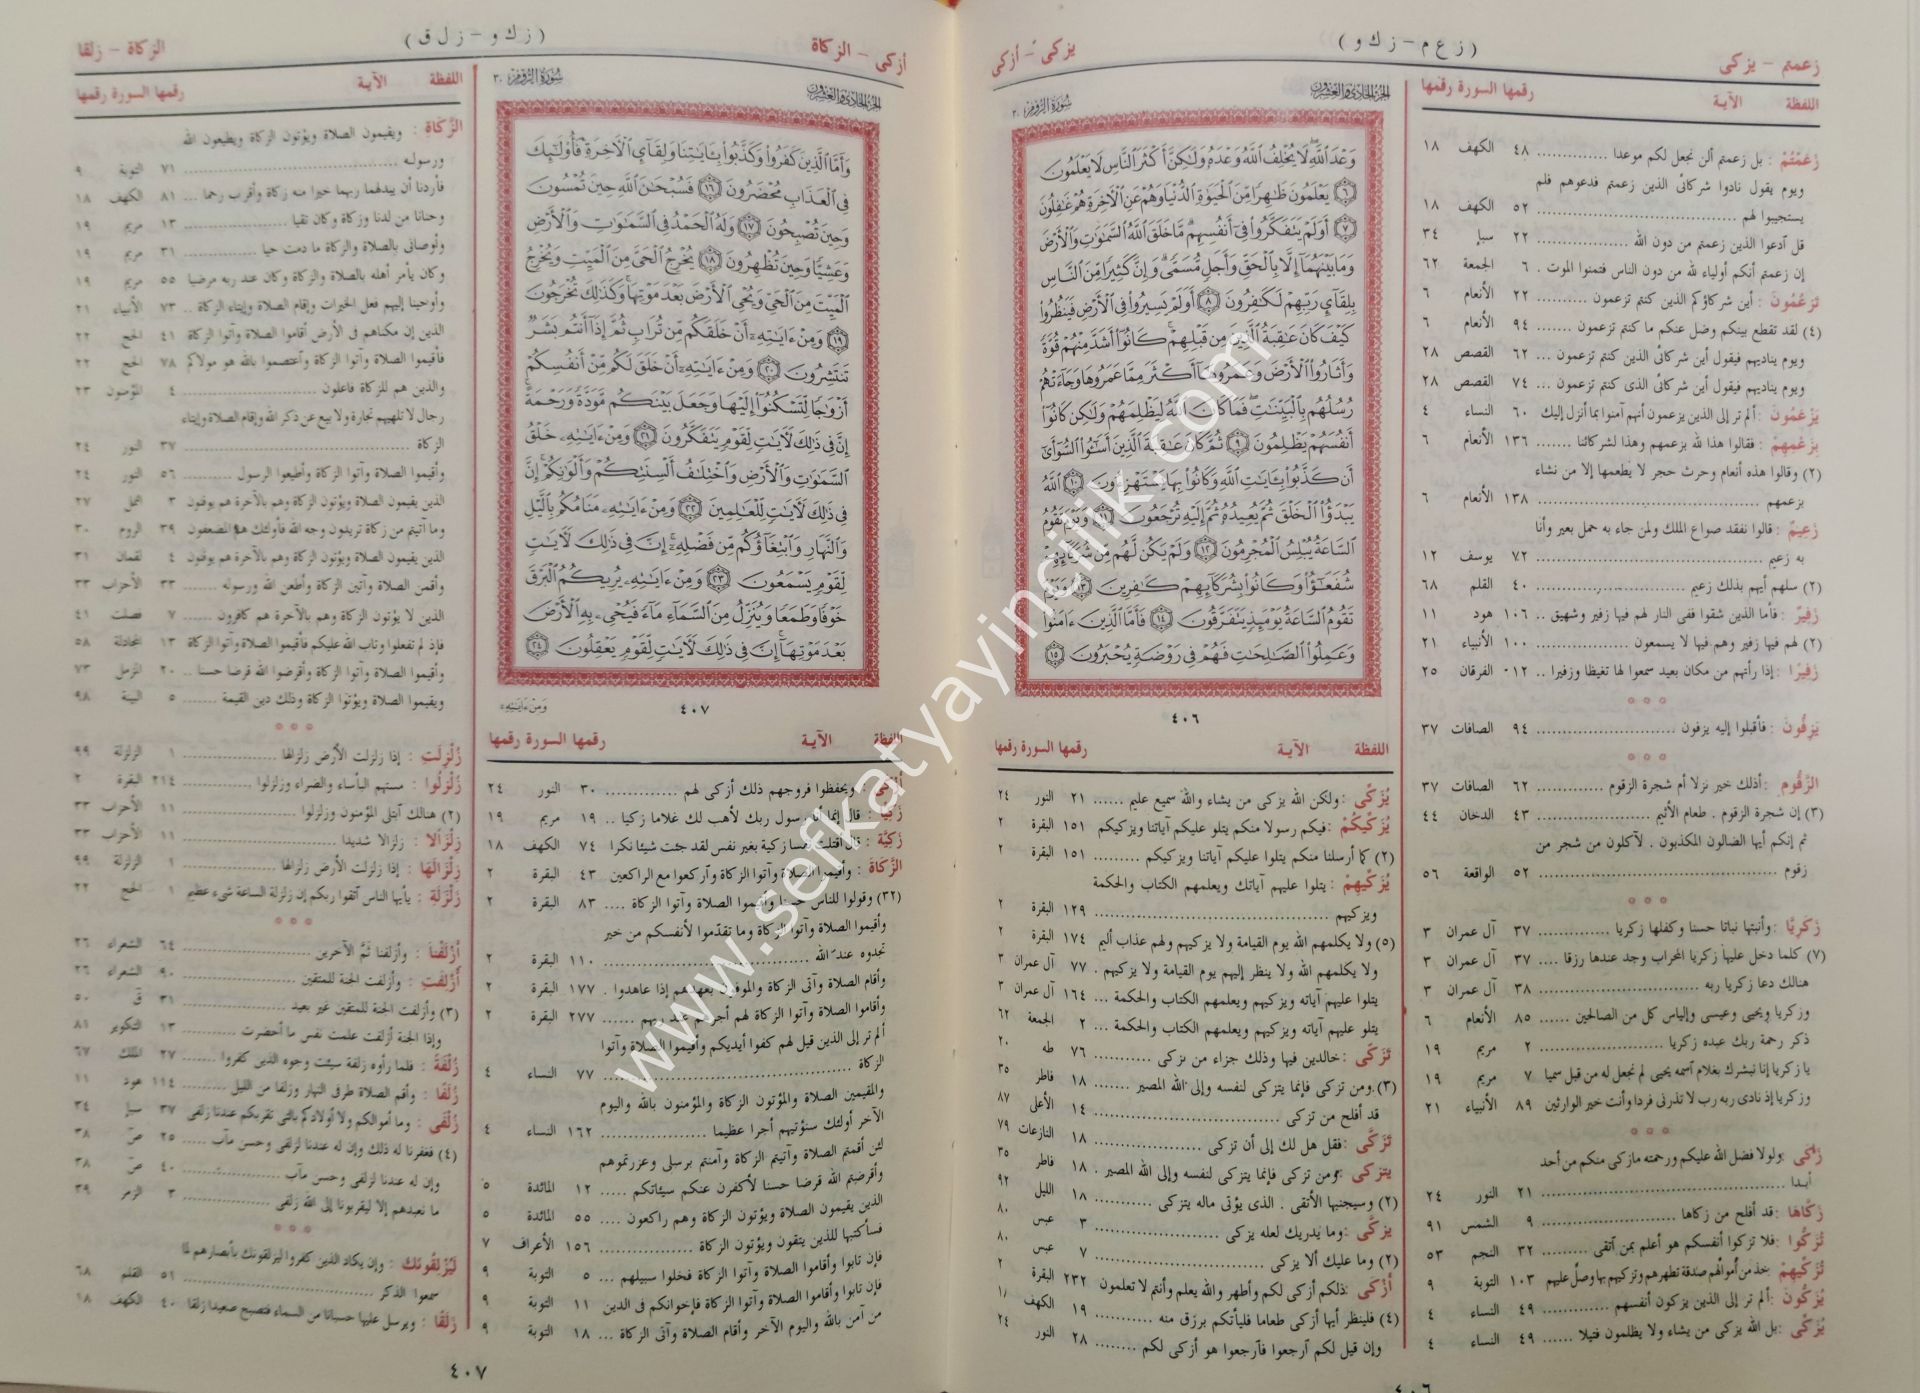 زعمتم – يزكى
( زعم – زكو )
يزكى – أزكى
اللفظة الآية رقمها السورة رقمها
زَعَمْتُمْ : بل زعمتم ألن نجعل لكم موعدا ............. ٤٨ الكهف ١٨
ويوم يقول نادوا شركائى الذين زعمتم فدعوهم فلم
يستجيبوا لهم ............. ٥٢ الكهف ١٨
قل آدعوا الذين زعمتم من دون الله ............. ٢٢ سبإ ٣٤
إن زعمتم أنكم أولياء لله من دون الناس فتمنوا الموت . ٦ الجمعة ٦٢
تَزْعُمُونَ : أين شركاؤكم الذين كنتم تزعمون ............. ٢٢ الأنعام ٦
(٤) لقد تقطع بينكم وضل عنكم ما كنتم تزعمون ........ ٩٤ الأنعام ٦
ويوم يناديهم فيقول أين شركائى الذين كنتم تزعمون ... ٦٢ القصص ٢٨
ويوم يناديهم فيقول أين شركائى الذى كنتم تزعمون ... ٧٤ القصص ٢٨
يَزْعُمُونَ : ألم تر إلى الذين يزعمون أنهم آمنوا بما أنزل إليك ٦٠ النساء ٤
بِزَعْمِهِمْ : فقالوا هذا لله بزعمهم وهذا لشركائنا ....... ١٣٦ الأنعام ٦
(٢) وقالوا هذه أنعام وحرث حجر لا يطعمها إلا من نشاء
بزعمهم ............. ١٣٨ الأنعام ٦
زَعِيمٌ : قالوا نفقد صواع الملك ولمن جاء به حمل بعير وأنا
به زعيم ............. ٧٢ يوسف ١٢
(٢) سلهم أيهم بذلك زعيم ............. ٤٠ القلم ٦٨
زَفِيرٌ : فأما الذين شقوا ففى النار لهم فيها زفير وشهيق .. ١٠٦ هود ١١
(٢) لهم فيها زفير وهم فيها لا يسمعون ............. ١٠٠ الأنبياء ٢١
زَفِيرًا : إذا رأتهم من مكان بعيد سمعوا لها تغيظا وزفيرا .. ٠١٢ الفرقان ٢٥
يَزِفُّونَ : فأقبلوا إليه يزفون ............. ٩٤ الصافات ٣٧
الزَّقُّومِ : أذلك خير نزلا أم شجرة الزقوم ............. ٦٢ الصافات ٣٧
(٣) إن شجرة الزقوم . طعام الأثيم ............. ٤٣ الدخان ٤٤
ثم إنكم أيها الضالون المكذبون . لآكلون من شجر من
زقوم ............. ٥٢ الواقعة ٥٦
زَكَرِيَّا : وأنبتها نباتا حسنا وكفلها زكريا ............. ٣٧ آل عمران ٣
(٧) كلما دخل عليها زكريا المحراب وجد عندها رزقا .... ٣٧ آل عمران ٣
هنالك دعا زكريا ربه ............. ٣٨ آل عمران ٣
وزكريا ويحيى وعيسى وإلياس كل من الصالحين ...... ٨٥ الأنعام ٦
ذكر رحمة ربك عبده زكريا ............. ٢ مريم ١٩
يا زكريا إنا نبشرك بغلام آسمه يحيى لم نجعل له من قبل سميا ٧ مريم ١٩
وزكريا إذ نادى ربه رب لا تذرنى فردا وأنت خير الوارثين ٨٩ الأنبياء ٢١
زَكَى : ولولا فضل الله عليكم ورحمته مازكى منكم من أحد
أبدا ............. ٢١ النور ٢٤
زَكَّاهَا : قد أفلح من زكاها ............. ٩ الشمس ٩١
تُزَكُّوا : فلا تزكوا أنفسكم هو أعلم بمن آتقى ......... ٣٢ النجم ٥٣
تُزَكِّيهِمْ : خذ من أموالهم صدقة تطهرهم وتزكيهم بها وصلّ عليهم ١٠٣ التوبة ٩
يُزَكُّونَ : ألم تر إلى الذين يزكون أنفسهم ............. ٤٩ النساء ٤
يُزَكِّى : بل الله يزكى من يشاء ولا يظلمون فتيلا ...... ٤٩ النساء ٤
الجزء الحادى والعشرون
سورة الروم ٣٠
وَعْدَ ٱللَّهِ لَا يُخْلِفُ ٱللَّهُ وَعْدَهُۥ وَلَٰكِنَّ أَكْثَرَ ٱلنَّاسِ لَا يَعْلَمُونَ
٦ يَعْلَمُونَ ظَٰهِرًا مِّنَ ٱلْحَيَوٰةِ ٱلدُّنْيَا وَهُمْ عَنِ ٱلْأَخِرَةِ هُمْ غَٰفِلُونَ
٧ أَوَلَمْ يَتَفَكَّرُوا۟ فِىٓ أَنفُسِهِم مَّا خَلَقَ ٱللَّهُ ٱلسَّمَٰوَٰتِ وَٱلْأَرْضَ
وَمَا بَيْنَهُمَآ إِلَّا بِٱلْحَقِّ وَأَجَلٍ مُّسَمًّى وَإِنَّ كَثِيرًا مِّنَ ٱلنَّاسِ
بِلِقَآئِ رَبِّهِمْ لَكَٰفِرُونَ ٨ أَوَلَمْ يَسِيرُوا۟ فِى ٱلْأَرْضِ فَيَنظُرُوا۟
كَيْفَ كَانَ عَٰقِبَةُ ٱلَّذِينَ مِن قَبْلِهِمْ كَانُوٓا۟ أَشَدَّ مِنْهُمْ قُوَّةً
وَأَثَارُوا۟ ٱلْأَرْضَ وَعَمَرُوهَآ أَكْثَرَ مِمَّا عَمَرُوهَا وَجَآءَتْهُمْ
رُسُلُهُم بِٱلْبَيِّنَٰتِ فَمَا كَانَ ٱللَّهُ لِيَظْلِمَهُمْ وَلَٰكِن كَانُوٓا۟
أَنفُسَهُمْ يَظْلِمُونَ ٩ ثُمَّ كَانَ عَٰقِبَةَ ٱلَّذِينَ أَسَٰٓـُٔوا۟ ٱلسُّوٓأَىٰٓ
أَن كَذَّبُوا۟ بِـَٔايَٰتِ ٱللَّهِ وَكَانُوا۟ بِهَا يَسْتَهْزِءُونَ ١٠ ٱللَّهُ
يَبْدَؤُا۟ ٱلْخَلْقَ ثُمَّ يُعِيدُهُۥ ثُمَّ إِلَيْهِ تُرْجَعُونَ ١١ وَيَوْمَ تَقُومُ
ٱلسَّاعَةُ يُبْلِسُ ٱلْمُجْرِمُونَ ١٢ وَلَمْ يَكُن لَّهُم مِّن شُرَكَآئِهِمْ
شُفَعَٰٓؤُا۟ وَكَانُوا۟ بِشُرَكَآئِهِمْ كَٰفِرِينَ ١٣ وَيَوْمَ
تَقُومُ ٱلسَّاعَةُ يَوْمَئِذٍ يَتَفَرَّقُونَ ١٤ فَأَمَّا ٱلَّذِينَ ءَامَنُوا۟
وَعَمِلُوا۟ ٱلصَّٰلِحَٰتِ فَهُمْ فِى رَوْضَةٍ يُحْبَرُونَ ١٥
٤٠٦
اللفظة الآية رقمها السورة رقمها
يُزَكِّى : ولكن الله يزكى من يشاء والله سميع عليم ...... ٢١ النور ٢٤
يُزَكِّيكُمْ : فيكم رسولا منكم يتلو عليكم آياتنا ويزكيكم ١٥١ البقرة ٢
(٢) كما أرسلنا منكم يتلوا عليكم آياتنا ويزكيكم ......... ١٥١ البقرة ٢
يُزَكِّيهِمْ : يتلوا عليهم آياتك ويعلمهم الكتاب والحكمة
ويزكيهم ............. ١٢٩ البقرة ٢
(٥) ولا يكلمهم الله يوم القيامة ولا يزكيهم ولهم عذاب أليم ١٧٤ البقرة ٢
ولا يكلمهم الله ولا ينظر إليهم يوم القيامة ولا يزكيهم . ٧٧ آل عمران ٣
يتلوا عليهم آياته ويزكيهم ويعلمهم الكتاب والحكمة ... ١٦٤ آل عمران ٣
يتلو عليهم آياته ويزكيهم ويعلمهم الكتاب والحكمة ... ٢ الجمعة ٦٢
تَزَكَّى : خالدين فيها وذلك جزاء من تزكى ............. ٧٦ طه ٢٠
(٣) ومن تزكى فإنما يتزكى لنفسه وإلى الله المصير ....... ١٨ فاطر ٣٥
قد أفلح من تزكى ............. ١٤ الأعلى ٨٧
تَزَكَّى : فقل هل لك إلى أن تزكى ............. ١٨ النازعات ٧٩
يتزكى : ومن تزكى فإنما يتزكى لنفسه وإلى الله المصير . ١٨ فاطر ٣٥
(٢) وسيجنبها الأتقى . الذى يؤتى ماله يتزكى ......... ١٨ الليل ٩٢
يزكّى : وما يدريك لعله يزكى ............. ٣ عبس ٨٠
(٢) وما عليك ألا يزكى ............. ٧ عبس ٨٠
أَزْكَى : ذلكم أزكى لكم وأطهر والله يعلم وأنتم لا تعلمون ٢٣٢ البقرة ٢
(٤) فلينظر أيها أزكى طعاما فليأتكم برزق منه ......... ١٩ الكهف ١٨
وإن قيل لكم آرجعوا فآرجعوا هو أزكى لكم ........ ٢٨ النور ٢٤
٤٠٦
أزكى – الزكاة
( زكو – زلق )
الزكاة – زلقا
الجزء الحادى والعشرون
سورة الروم ٣٠
وَأَمَّا ٱلَّذِينَ كَفَرُوا۟ وَكَذَّبُوا۟ بِـَٔايَٰتِنَا وَلِقَآئِ ٱلْأَخِرَةِ فَأُو۟لَٰٓئِكَ
فِى ٱلْعَذَابِ مُحْضَرُونَ ١٦ فَسُبْحَٰنَ ٱللَّهِ حِينَ تُمْسُونَ
وَحِينَ تُصْبِحُونَ ١٧ وَلَهُ ٱلْحَمْدُ فِى ٱلسَّمَٰوَٰتِ وَٱلْأَرْضِ
وَعَشِيًّا وَحِينَ تُظْهِرُونَ ١٨ يُخْرِجُ ٱلْحَىَّ مِنَ ٱلْمَيِّتِ وَيُخْرِجُ
ٱلْمَيِّتَ مِنَ ٱلْحَىِّ وَيُحْىِ ٱلْأَرْضَ بَعْدَ مَوْتِهَا وَكَذَٰلِكَ تُخْرَجُونَ
١٩ وَمِنْ ءَايَٰتِهِۦٓ أَنْ خَلَقَكُم مِّن تُرَابٍ ثُمَّ إِذَآ أَنتُم بَشَرٌ
تَنتَشِرُونَ ٢٠ وَمِنْ ءَايَٰتِهِۦٓ أَنْ خَلَقَ لَكُم مِّنْ أَنفُسِكُمْ
أَزْوَٰجًا لِّتَسْكُنُوٓا۟ إِلَيْهَا وَجَعَلَ بَيْنَكُم مَّوَدَّةً وَرَحْمَةً
إِنَّ فِى ذَٰلِكَ لَأَيَٰتٍ لِّقَوْمٍ يَتَفَكَّرُونَ ٢١ وَمِنْ ءَايَٰتِهِۦ خَلْقُ
ٱلسَّمَٰوَٰتِ وَٱلْأَرْضِ وَٱخْتِلَٰفُ أَلْسِنَتِكُمْ وَأَلْوَٰنِكُمْ إِنَّ
فِى ذَٰلِكَ لَأَيَٰتٍ لِّلْعَٰلِمِينَ ٢٢ وَمِنْ ءَايَٰتِهِۦ مَنَامُكُم بِٱلَّيْلِ
وَٱلنَّهَارِ وَٱبْتِغَآؤُكُم مِّن فَضْلِهِۦٓ إِنَّ فِى ذَٰلِكَ لَأَيَٰتٍ
لِّقَوْمٍ يَسْمَعُونَ ٢٣ وَمِنْ ءَايَٰتِهِۦ يُرِيكُمُ ٱلْبَرْقَ
خَوْفًا وَطَمَعًا وَيُنَزِّلُ مِنَ ٱلسَّمَآءِ مَآءً فَيُحْىِۦ بِهِ ٱلْأَرْضَ
بَعْدَ مَوْتِهَآ إِنَّ فِى ذَٰلِكَ لَأَيَٰتٍ لِّقَوْمٍ يَعْقِلُونَ ٢٤
٤٠٧
ومن ءايته
اللفظة الآية رقمها السورة رقمها
أَزْكَى : ويحفظوا فروجهم ذلك أزكى لهم ............. ٣٠ النور ٢٤
زَكِيًّا : قال إنما أنا رسول ربك لأهب لك غلاما زكيا .. ١٩ مريم ١٩
زَكِيَّةً : قال أقتلت نفسا زكية بغير نفس لقد جئت شيئا نكرا ٧٤ الكهف ١٨
الزَّكَاةَ : وأقيموا الصلاة وآتوا الزكاة وآركعوا مع الراكعين ٤٣ البقرة ٢
(٣٢) وقولوا للناس حسنا وأقيموا الصلاة وآتوا الزكاة .... ٨٣ البقرة ٢
وأقيموا الصلاة وآتوا الزكاة وما تقدّموا لأنفسكم من خير
تجدوه عند الله ............. ١١٠ البقرة ٢
وأقام الصلاة وآتى الزكاة والموفون بعهدهم إذا عاهدوا . ١٧٧ البقرة ٢
وأقاموا الصلاة وآتوا الزكاة لهم أجرهم عند ربهم ...... ٢٧٧ البقرة ٢
ألم تر إلى الذين قيل لهم كفوا أيديكم وأقيموا الصلاة وآتوا
الزكاة ............. ٧٧ النساء ٤
والمقيمين الصلاة والمؤتون الزكاة والمؤمنون بالله واليوم
الآخر أولئك سنؤتيهم أجرا عظيما ............. ١٦٢ النساء ٤
لئن أقمتم الصلاة وآتيتم الزكاة وآمنتم برسلى وعزرتموهم
وأقرضتم الله قرضا حسنا لأكفرن عنكم سيئاتكم ..... ١٢ المائدة ٥
الذين يقيمون الصلاة ويؤتون الزكاة وهم راكعون .... ٥٥ المائدة ٥
فسأكتبها للذين يتقون ويؤتون الزكاة ............. ١٥٦ الأعراف ٧
فإن تابوا وأقاموا الصلاة وآتوا الزكاة فخلوا سبيلهم ... ٥ التوبة ٩
فإن تابوا وأقاموا الصلاة وآتوا الزكاة فإخوانكم فى الدين ١١ التوبة ٩
من آمن بالله واليوم الآخر وأقام الصلاة وآتى الزكاة ... ١٨ التوبة ٩
اللفظة الآية رقمها السورة رقمها
الزَّكَاةَ : ويقيمون الصلاة ويؤتون الزكاة ويطيعون الله
ورسوله ............. ٧١ التوبة ٩
فأردنا أن يبدلهما ربهما خيرا منه زكاة وأقرب رحما ... ٨١ الكهف ١٨
وحنانا من لدنا وزكاة وكان تقيا ............. ١٣ مريم ١٩
وأوصانى بالصلاة والزكاة ما دمت حيا ............. ٣١ مريم ١٩
وكان يأمر أهله بالصلاة والزكاة وكان عند ربه مرضيا ٥٥ مريم ١٩
وأوحينا إليهم فعل الخيرات وإقام الصلاة وإيتاء الزكاة .. ٧٣ الأنبياء ٢١
الذين إن مكناهم فى الأرض أقاموا الصلاة وآتوا الزكاة ٤١ الحج ٢٢
فأقيموا الصلاة وآتوا الزكاة وآعتصموا بالله هو مولاكم ٧٨ الحج ٢٢
والذين هم للزكاة فاعلون ............. ٤ المؤمنون ٢٣
رجال لا تلهيهم تجارة ولا بيع عن ذكر الله وإقام الصلاة وإيتاء
الزكاة ............. ٣٧ النور ٢٤
وأقيموا الصلاة وآتوا الزكاة وأطيعوا الرسول ......... ٥٦ النور ٢٤
الذين يقيمون الصلاة ويؤتون الزكاة وهم بالآخرة هم يوقنون ٣ النمل ٢٧
وما آتيتم من زكاة تريدون وجه الله فأولئك هم المضعفون ٣٩ الروم ٣٠
الذين يقيمون الصلاة ويؤتون الزكاة وهم بالآخرة هم يوقنون ٤ لقمان ٣١
وأقمن الصلاة وآتين الزكاة وأطعن الله ورسوله ...... ٣٣ الأحزاب ٣٣
الذين لا يؤتون الزكاة وهم بالآخرة هم كافرون ...... ٧ فصلت ٤١
فإذ لم تفعلوا وتاب الله عليكم فأقيموا الصلاة وآتوا الزكاة ١٣ المجادلة ٥٨
وأقيموا الصلاة وآتوا الزكاة وأقرضوا الله قرضا حسنا .. ٢٠ المزمل ٧٣
ويقيموا الصلاة ويؤتوا الزكاة وذلك دين القيمة ...... ٥ البينة ٩٨
زُلْزِلَتِ : إذا زلزلت الأرض زلزالها ............. ١ الزلزلة ٩٩
زُلْزِلُوا : مستهم البأساء والضراء وزلزلوا ............. ٢١٤ البقرة ٢
(٢) هنالك آبتلى المؤمنون وزلزلوا ............. ١١ الأحزاب ٣٣
زِلْزَالًا : زلزالا شديدا ............. ١١ الأحزاب ٣٣
زِلْزَالَهَا : إذا زلزلت الأرض زلزالها ............. ١ الزلزلة ٩٩
زَلْزَلَةَ : يأيها الناس آتقوا ربكم إن زلزلة الساعة شىء عظيم ١ الحج ٢٢
أَزْلَفْنَا : وأزلفنا ثَمَّ الآخرين ............. ٦٤ الشعراء ٢٦
أُزْلِفَتِ : وأزلفت الجنة للمتقين ............. ٩٠ الشعراء ٢٦
(٣) وأزلفت الجنة للمتقين غير بعيد ............. ٣١ قٓ ٥٠
وإذا الجنة أزلفت علمت نفس ما أحضرت ............. ١٣ التكوير ٨١
زُلْفَةً : فلما رأوه زلفة سيئت وجوه الذين كفروا ....... ٢٧ الملك ٦٧
زُلَفًا : وأقم الصلاة طرفى النهار وزلفا من الليل ....... ١١٤ هود ١١
زُلْفَى : وما أموالكم ولا أولادكم بالتى تقربكم عندنا زلفى ٣٧ سبإ ٣٤
(٤) فغفرنا له ذلك وإن له عندنا لزلفى وحسن مآب ..... ٢٥ صٓ ٣٨
وإن له عندنا لزلفى وحسن مآب ............. ٤٠ صٓ ٣٨
ما نعبدهم إلا ليقربونا إلى الله زلفى ............. ٣ الزمر ٣٩
لَيُزْلِقُونَكَ : وإن يكاد الذين كفروا ليزلقونك بأبصارهم لما
سمعوا الذكر ............. ٥١ القلم ٦٨
زَلَقًا : ويرسل عليها حسبانا من السماء فتصبح صعيدا زلقا ٤٠ الكهف ١٨
٤٠٧
www.sefkatyayincilik.com